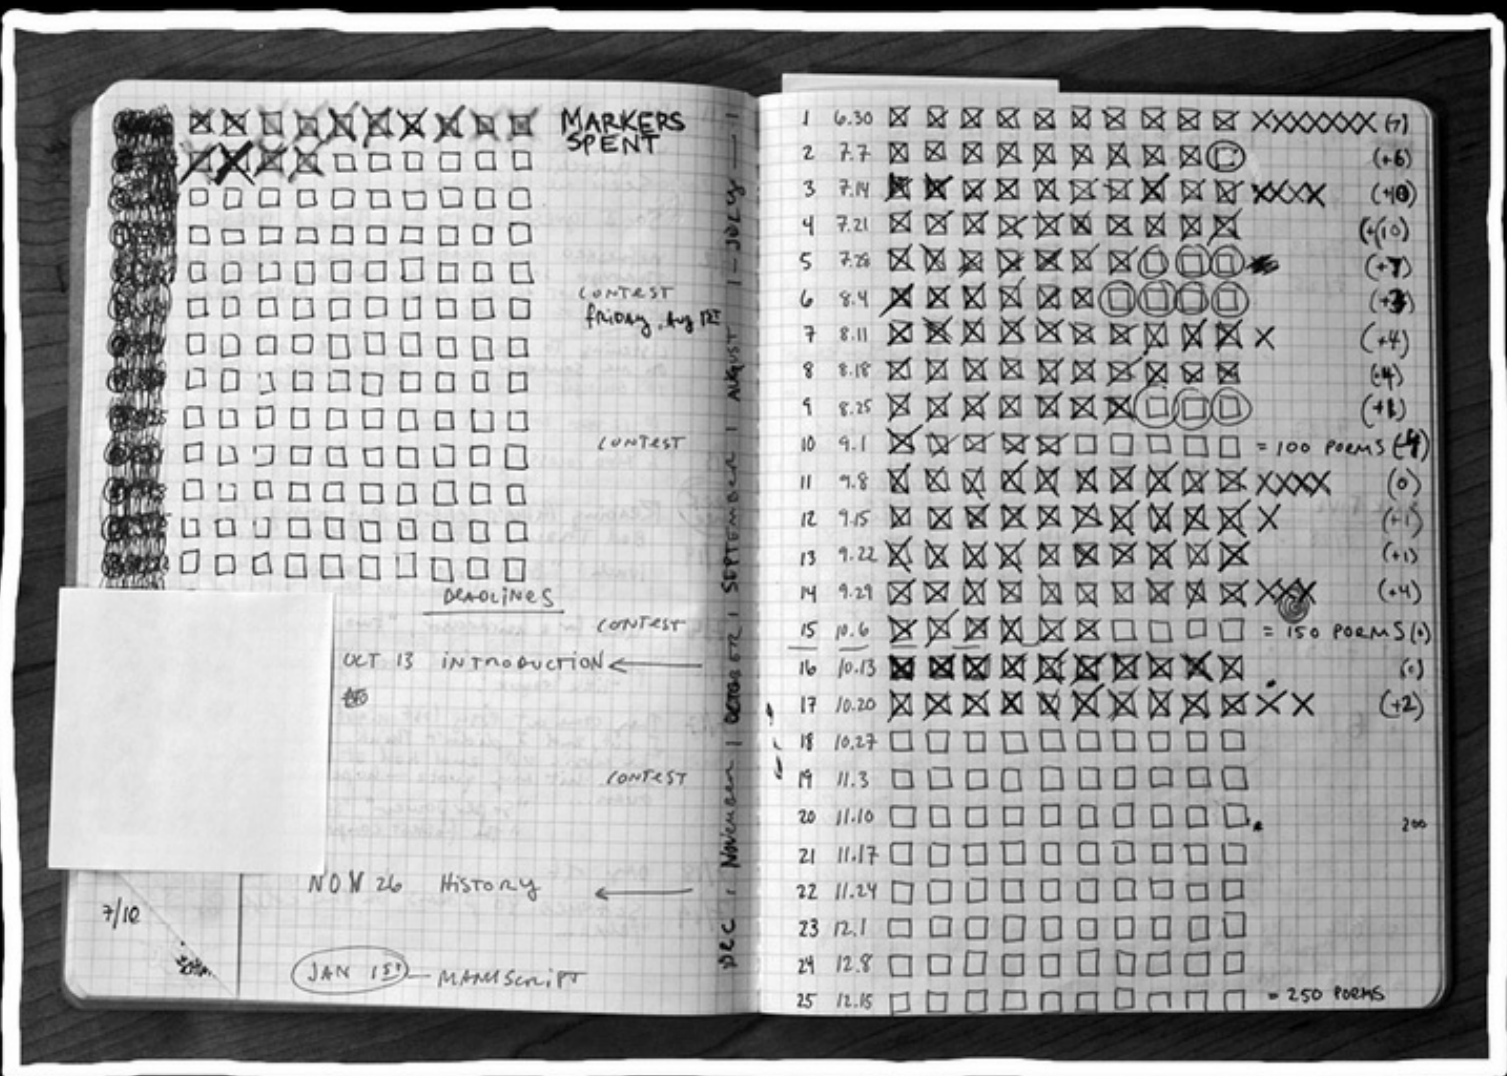 MARKERS
SPENT
CONTEST
FRIDAY, AUG 1ST
CONTEST
DEADLINES
CONTEST
OCT 13 INTRODUCTION
CONTEST
NOV 26 HISTORY
7/10
JAN 1ST — MANUSCRIPT
DEC | NOVEMBER | OCTOBER | SEPTEMBER | AUGUST | — JULY — |
1 6.30 XXXXXXX (7)
2 7.7 (+6)
3 7.14 XXXX (+10)
4 7.21 (+10)
5 7.28 (+7)
6 8.4 (+3)
7 8.11 X (+4)
8 8.18 (+4)
9 8.25 (+1)
10 9.1 = 100 POEMS (-4)
11 9.8 XXXX (0)
12 9.15 X (+1)
13 9.22 (+1)
14 9.29 XXX (+4)
15 10.6 = 150 POEMS (0)
16 10.13 (0)
17 10.20 X X (+2)
18 10.27
19 11.3
20 11.10 200
21 11.17
22 11.24
23 12.1
24 12.8
25 12.15 = 250 POEMS